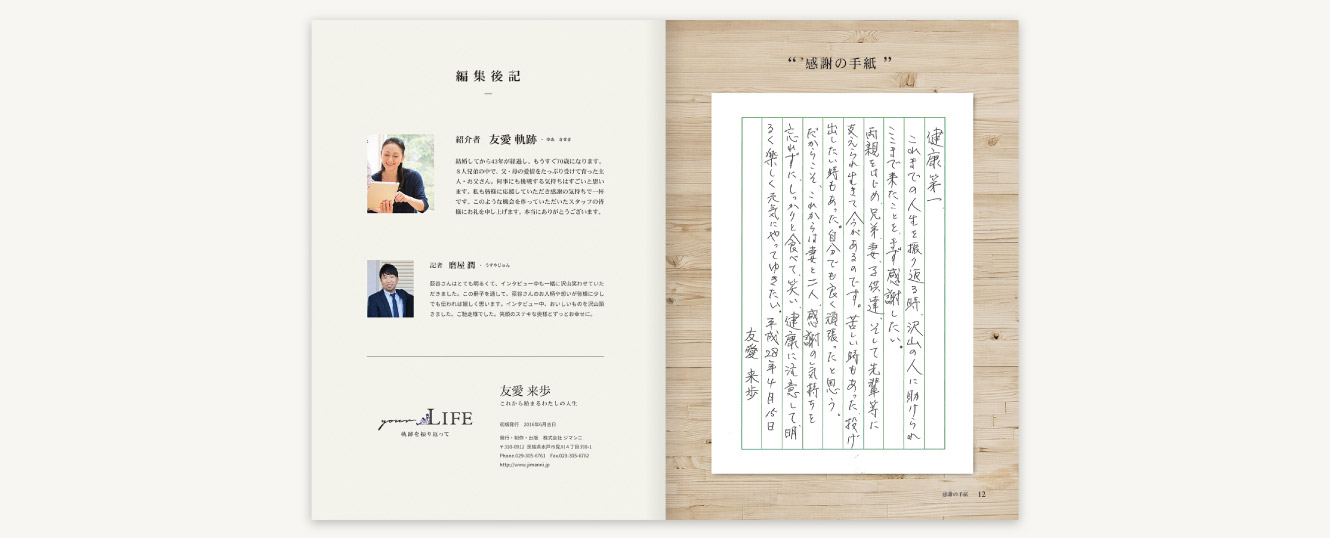 編集後記
紹介者 友愛 軌跡
結婚してから43年が経過し、もうすぐ70歳になります。
８人兄弟の中で、父・母の愛情をたっぷり受けて育った主
人・お父さん。何事にも挑戦する気持ちはすごいと思い
ます。私も皆様に応援していただき感謝の気持ちで一杯
です。このような機会を作っていただいたスタッフの皆
様にお礼を申し上げます。本当にありがとうございます。
記者 磨屋 潤 - うすやじゅん
荻谷さんはとても明るくて、インタビュー中も一緒に沢山笑わせていた
だきました。この冊子を通して、荻谷さんのお人柄や想いが皆様に少し
でも伝われば嬉しく思います。インタビュー中、おいしいものを沢山頂
きました。ご馳走様でした。笑顔のステキな奥様とずっとお幸せに。
your LIFE
軌跡を振り返って
友愛 来歩
これから始まるわたしの人生
初版発行 2016年6月吉日
発行・制作・出版 株式会社 ジマンニ
〒310-0912 茨城県水戸市見川４丁目390-1
Phone.029-305-6761 Fax.029-305-6762
http://www.jimanni.jp
“ 感謝の手紙 ”
健康第一
これまでの人生を振り返る時、沢山の人に助けられ
ここまで来たことを、まず感謝したい。
両親をはじめ、兄弟、妻、子供達、そして先輩等に
支えられ生きて今があるのです。苦しい時もあった、投げ
出したい時もあった。自分でも良く頑張ったと思う。
だからこそ、これからは妻と二人、感謝の気持ちを
忘れずに、しっかりと食べて、笑い、健康に注意して、明
るく楽しく元気にやってゆきたい。平成28年4月15日
友愛 来歩
感謝の手紙 12